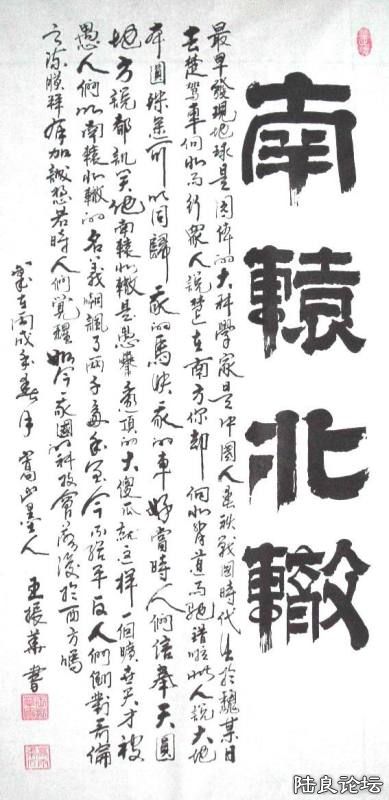 南轅北轍
最早發現地球是圓体的大科學家是中國人春秋戰國時代生於魏某日
去楚駕車向北而行衆人說楚在南方你却向北背道而馳錯啦此人說大地
本圓殊途可以同歸我的馬快我的車好當時人們信奉天圓
地方說都訊笑他南轅北轍是愚透頂的大傻瓜就這样一個曠世天才被
愚人們以南轅北轍的名義嘲諷了兩千多年至今不給平反人們倒對哥倫
膜拜有加誠想若時人們覺醒如今我國的科技會落後於西方嗎
歲在丙戌年春月嵩山墨人王振華書
陆良论坛